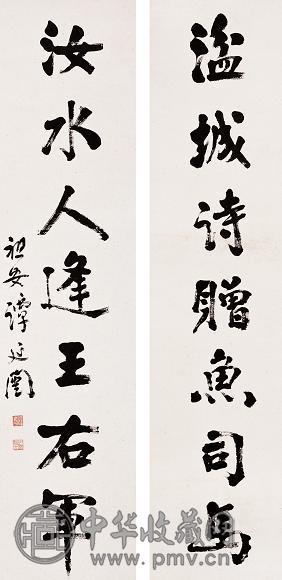 湓城诗赠鱼司马
汝水人逢王右军
祖安谭延闿
中华收藏网
www.pmv.cn